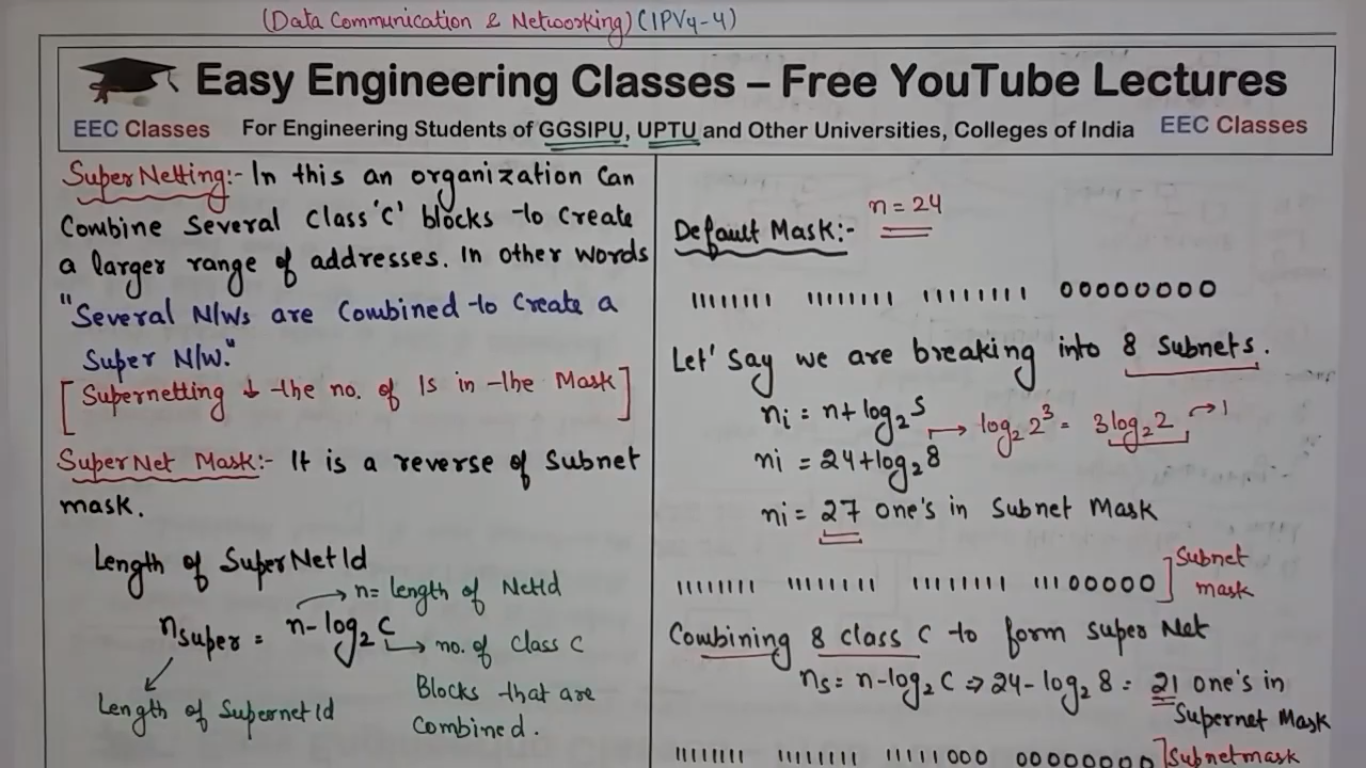 (Data Communication & Networking) (IPV4-4)
Easy Engineering Classes – Free YouTube Lectures
EEC Classes For Engineering Students of GGSIPU, UPTU and Other Universities, Colleges of India EEC Classes
SuperNetting:- In this an organization Can
Combine Several Class 'C' blocks to Create
a larger range of addresses. In other words
"Several N/Ws are Combined to Create a
Super N/W."
[Supernetting ↓ the no. of 1s in the Mask]
SuperNet Mask:- It is a reverse of Subnet
mask.
Length of SuperNetId
→ n = length of NetId
nsuper = n - log₂C
→ no. of Class C
Blocks that are
Combined.
Length of SupernetId
n = 24
Default Mask:-
11111111 11111111 11111111 00000000
Let' Say we are breaking into 8 Subnets.
ni = n + log₂S → log₂2³ = 3log₂2 → 1
ni = 24 + log₂8
ni = 27 one's in Subnet Mask
11111111 11111111 11111111 11100000 ] Subnet
mask
Combining 8 class C to form Super Net
ns = n - log₂C ⇒ 24 - log₂8 = 21 one's in
Supernet Mask
11111111 11111111 11111000 00000000 ] Subnetmask